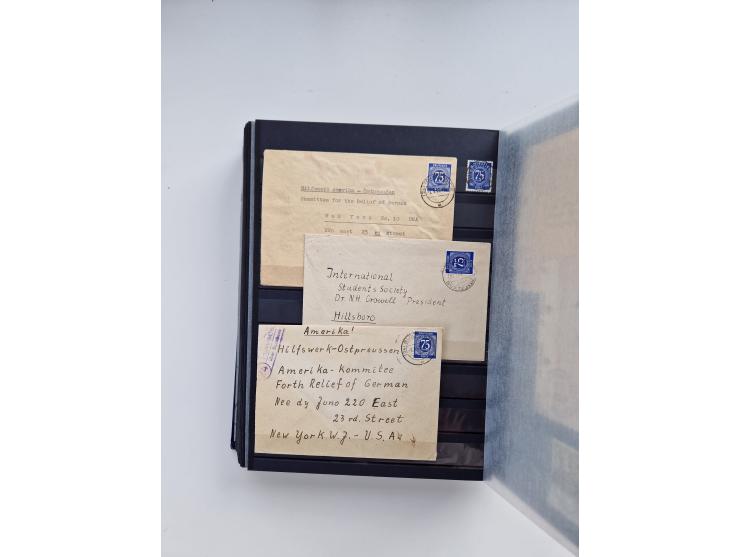 Hilfswerk Amerika - Ostpreussen
Committee for the Relief of German
New York No. 10 USA
220 east 23 rd Street
75
75
International
Students Society
Dr. N.H. Crowell President
Hillsboro
75
Amerika!
Hilfswerk-Ostpreussen
Amerika-Kommitee
Forth Relief of German
Nee dy Juno 220 East
23 rd. Street
New York W.J. - U.S.A
75